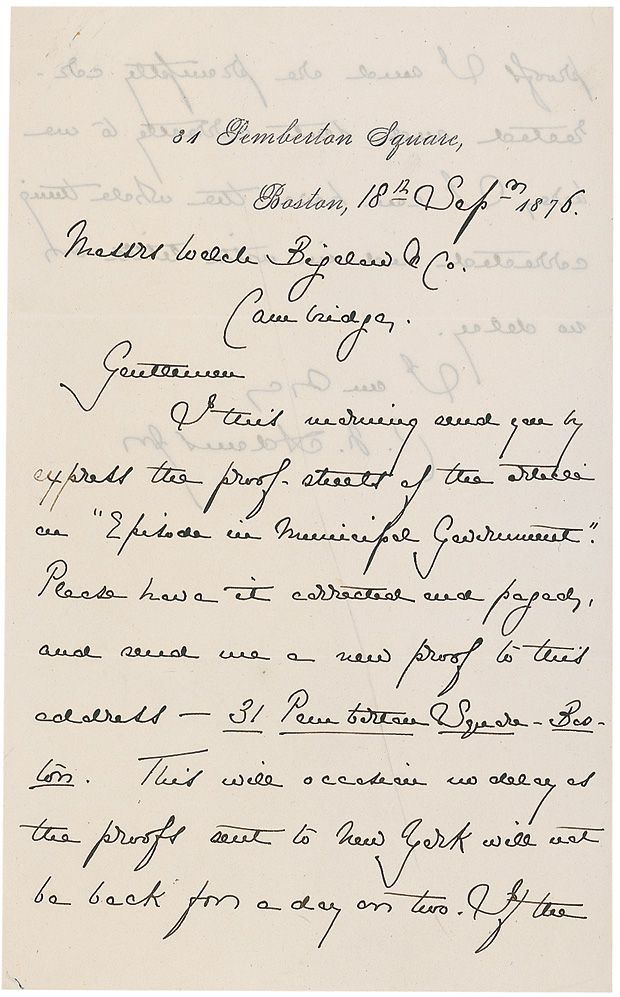 31 Pemberton Square,
Boston, 18th Sepr 1876.
Messrs Welch Bigelow & Co.
Cambridge,.
Gentlemen
I this morning send you by
express the proof-sheets of the article
on "Episode in Municipal Government".
Please have it corrected and paged,
and send me a new proof to this
address — 31 Pemberton Square - Bos-
ton. This will occasion no delay as
the proofs sent to New York will not
be back for a day or two. If the